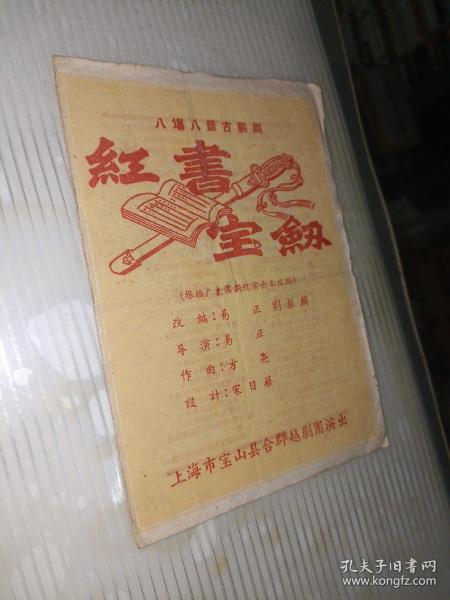 八場八景古裝剧
紅書宝剱
(根据广東漢劇院演出本改編)
改編:易正 劉振鵬
导演:易正
作曲:方亮
設計:宋日華
上海市宝山县合群越剧團演出
孔夫子旧书网
www.kongfz.com